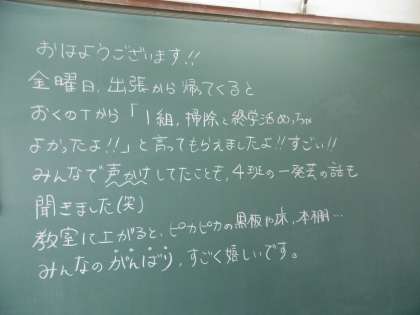 おはようございます!!
金曜日,出張から帰ってくると
おくのTから「1組,掃除と終学活めっちゃ
よかったよ!!」と言ってもらえましたよ!!すごい!!
みんなで声かけしてたことも,4班の一発芸の話も
聞きました(笑)
教室に上がると,ピカピカの黒板や床,本棚…
みんなのがんばり,すごく嬉しいです。